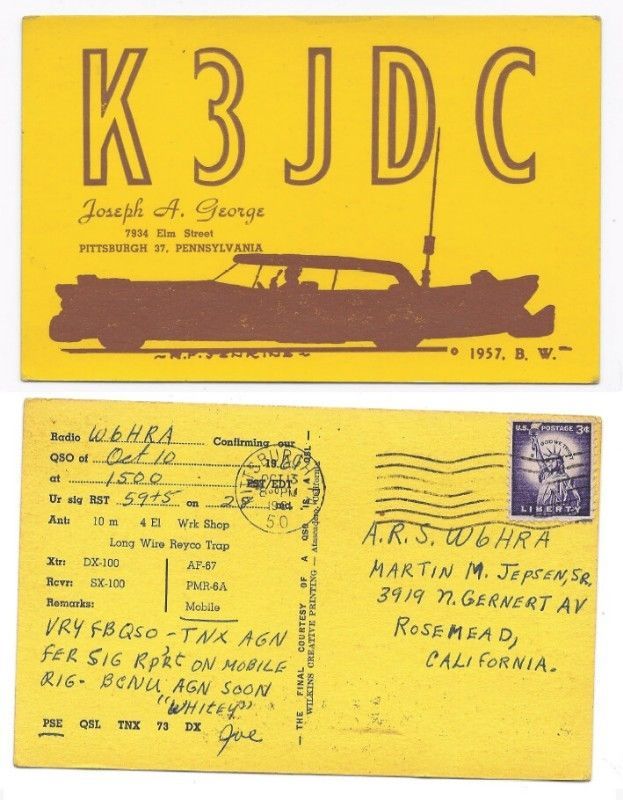 K3JDC
Joseph A. George
7934 Elm Street
PITTSBURGH 37, PENNSYLVANIA
© 1957, B. W.
Radio W6HRA Confirming our
QSO of Oct 10 19
at 1500 PST EDT
Ur sig RST 59+5 on
Ant: 10 m 4 El Wrk Shop
Long Wire Reyco Trap
Xtr: DX-100 AF-67
Rcvr: SX-100 PMR-6A
Remarks: Mobile
VRY FB QSO - TNX AGN
FER SIG RPRT ON MOBILE
RIG - BCNU AGN SOON
"WHITEY"
PSE QSL TNX 73 DX
Joe
— THE FINAL COURTESY OF A QSO IS A QSL —
WILKINS CREATIVE PRINTING — Atascadero, California
PITTSBURGH
OCT 13
PM
U.S. POSTAGE 3¢
IN GOD WE TRUST
LIBERTY
A.R.S. W6HRA
MARTIN M. JEPSEN, SR.
3919 N. GERNERT AV
ROSEMEAD,
CALIFORNIA.